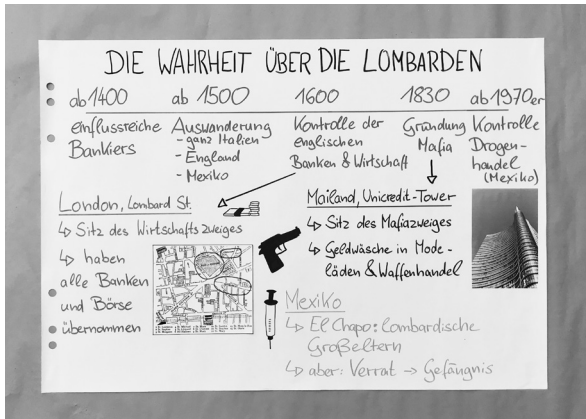 DIE WAHRHEIT ÜBER DIE LOMBARDEN
ab 1400
einflussreiche
Bankiers
ab 1500
Auswanderung
- ganz Italien
- England
- Mexiko
1600
Kontrolle der
englischen
Banken & Wirtschaft
1830
Gründung
Mafia
ab 1970er
Kontrolle
Drogen-
handel
(Mexiko)
London, Lombard St.
↳ Sitz des Wirtschaftszweiges
↳ haben
alle Banken
und Börse
übernommen
Mailand, Unicredit-Tower
↳ Sitz des Mafiazweiges
↳ Geldwäsche in Mode-
läden & Waffenhandel
Mexiko
↳ El Chapo: lombardische
Großeltern
↳ aber: Verrat → Gefängnis